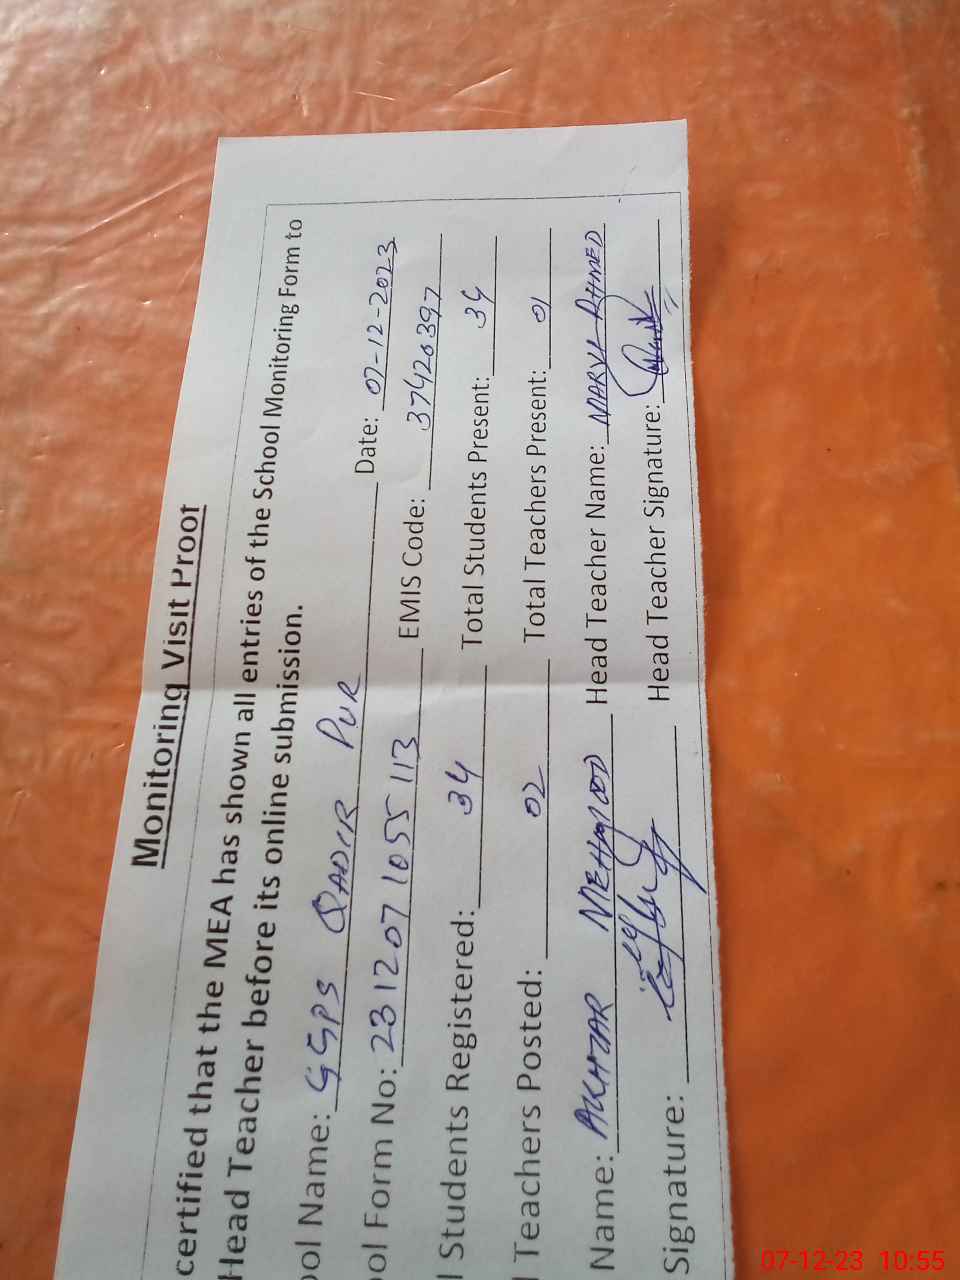 Monitoring Visit Proof
certified that the MEA has shown all entries of the School Monitoring Form to
Head Teacher before its online submission.
ool Name: GGPS QADIR PUR Date: 07-12-2023
ool Form No: 231207 1055 113 EMIS Code: 37420397
l Students Registered: 34 Total Students Present: 34
l Teachers Posted: 02 Total Teachers Present: 01
Name: AKHTAR MEHMOOD Head Teacher Name: AHMED
Signature: Head Teacher Signature:
07-12-23 10:55